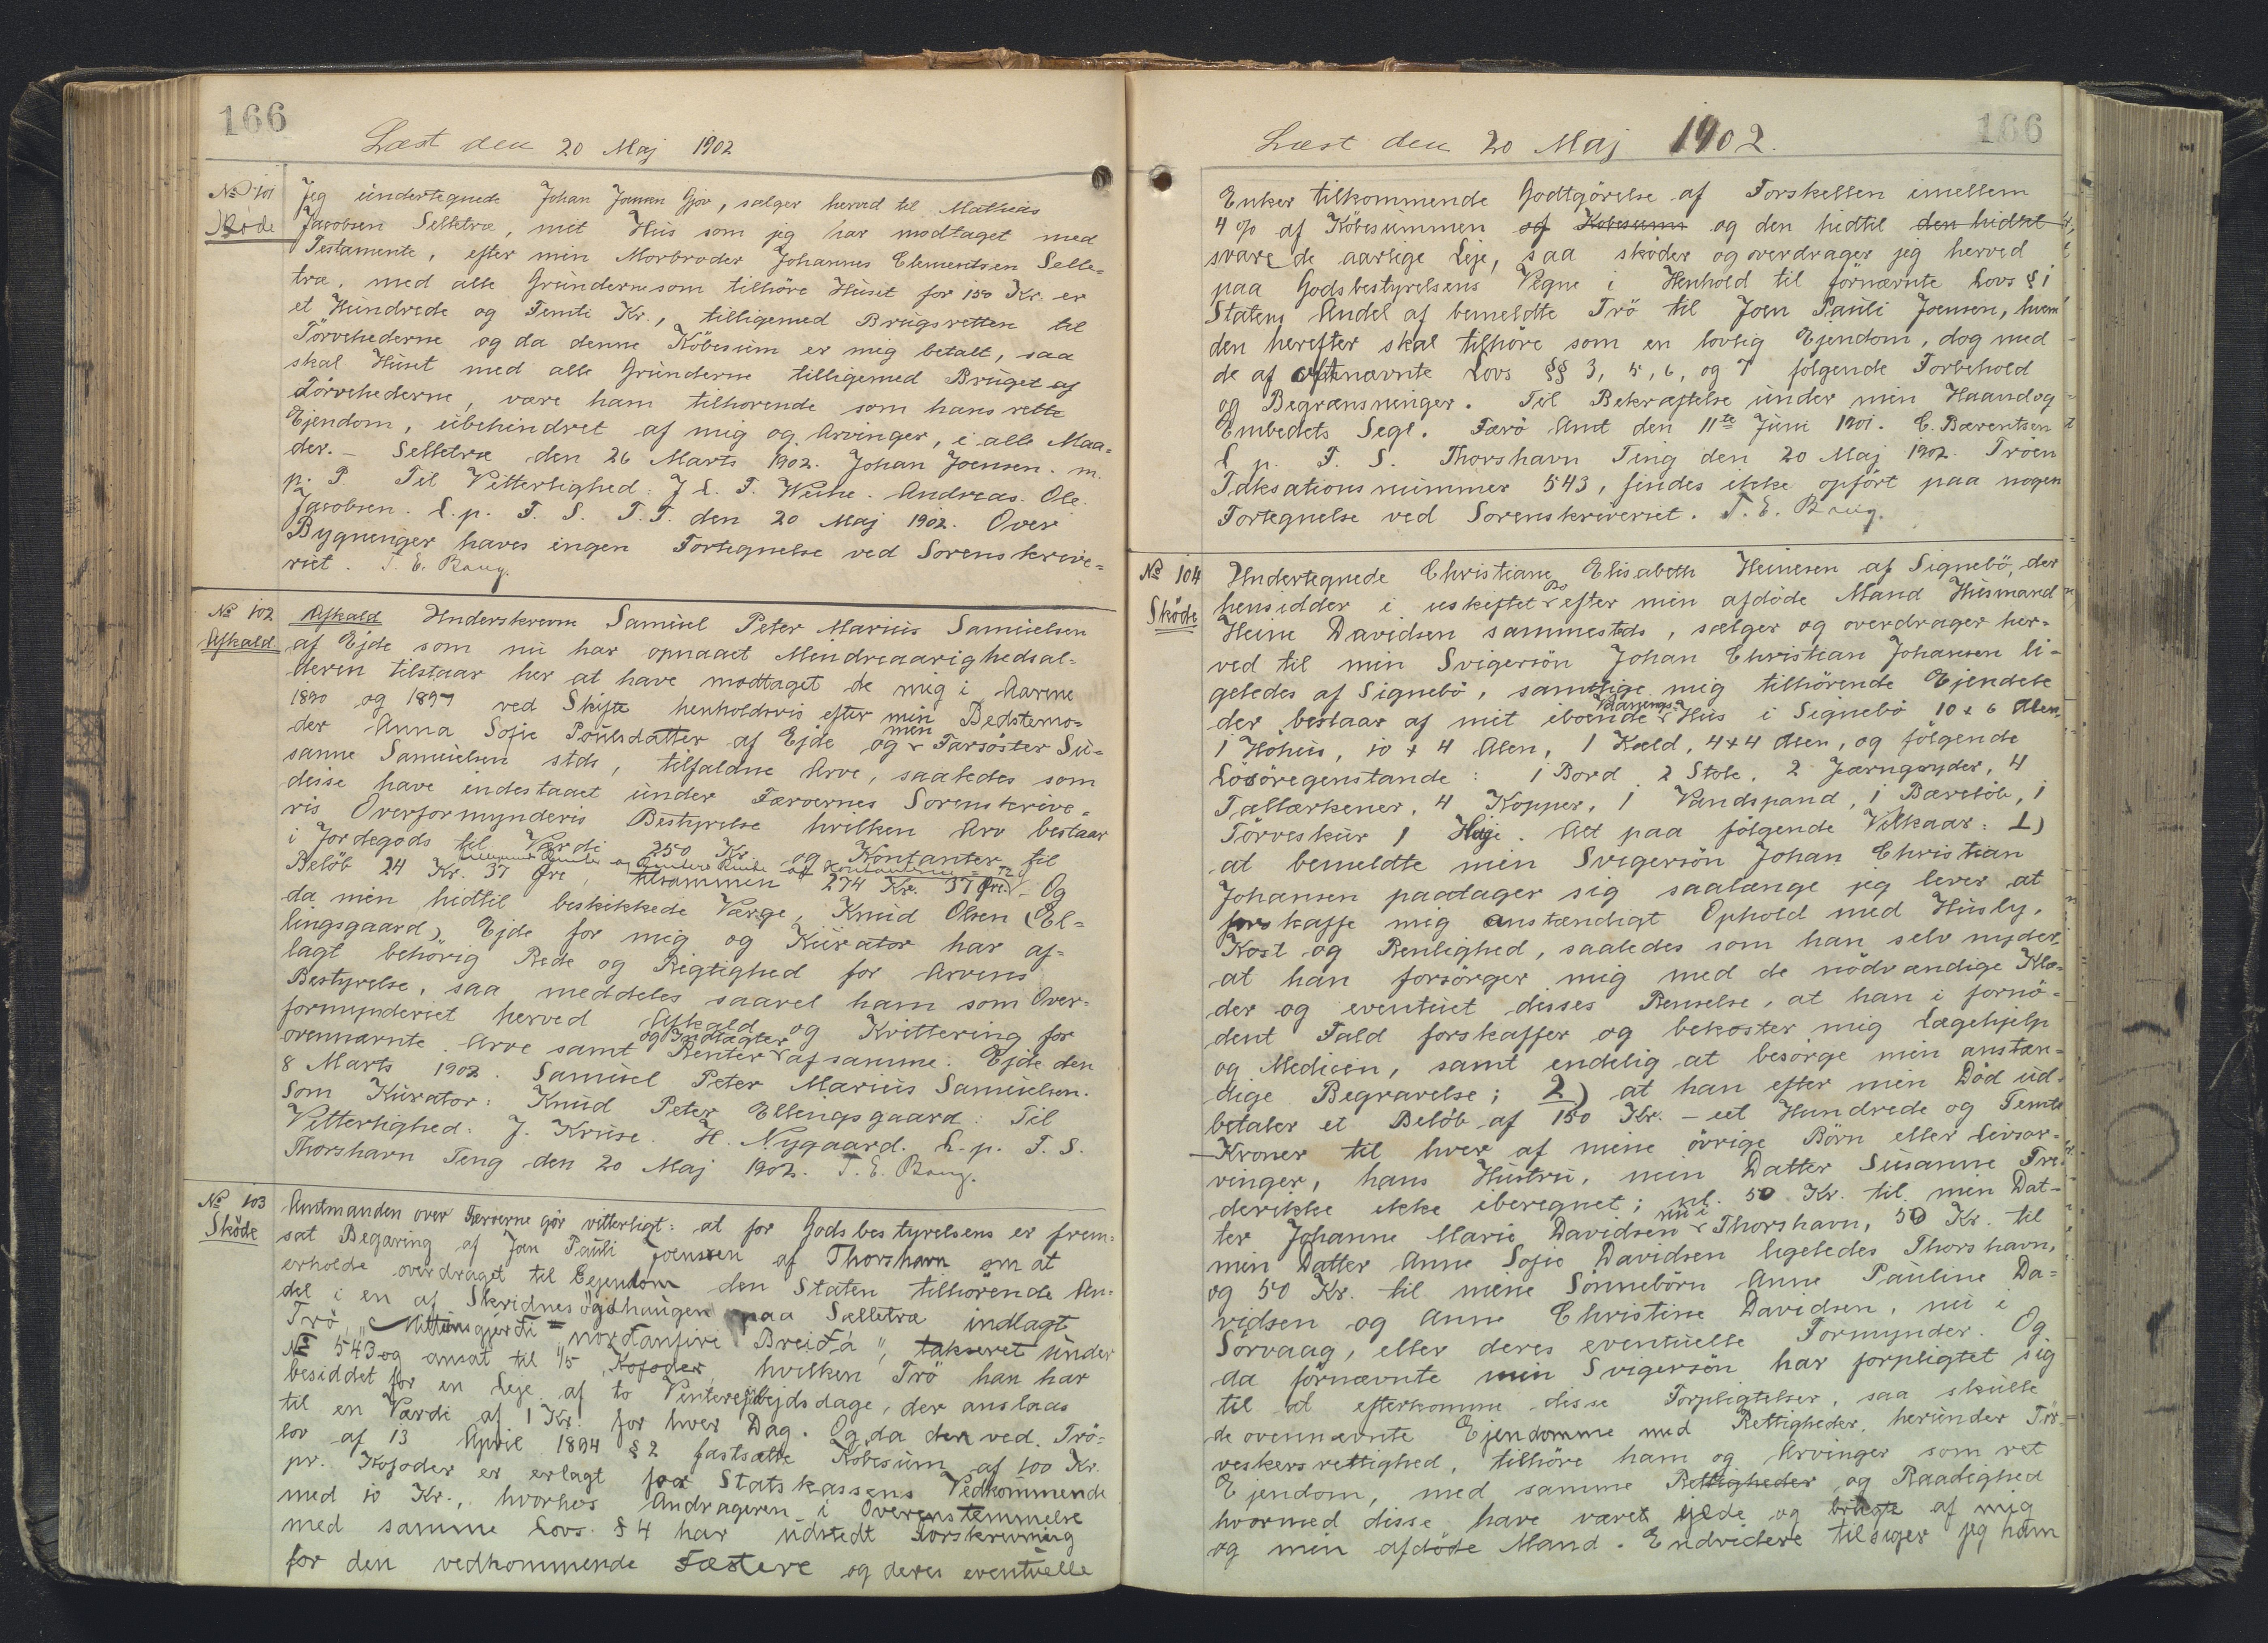 166
Læst den 20 Maj 1902
No 101
Sköde
Jeg undertegnede Johan Joensen Gjov, sælger herved til Mathias
Jacobsen Selletræ, mit Hus som jeg har modtaget med
Testamente, efter min Morbroder Johannes Clementsen Selle=
træ, med alle Grunderne som tilhöre Huset for 150 Kr. er
et Hundrede og Femti Kr., tilligemed Brugsretten til
Törvehederne og da denne Köbesum er mig betalt, saa
skal Huset med alle Grunderne tilligemed Bruget af
Törvehederne, være ham tilhorende som hans rette
Ejendom, ubehindret af mig og Arvinger, i alle Maa=
der. - Selletræ den 26 Marts 1902. Johan Joensen. m.
p. P. Til Vitterlighed: J L. F. Weihe. Andreas. Ole.
Jacobsen. L. p. T. S. T. T. den 20 Maj 1902. Over
Bygninger haves ingen Fortegnelse ved Sorenskrive=
riet. T. E. Bang.
No 102
Afkald
Afkald Underskrevne Samuel Peter Marius Samuelsen
af Ejde som nu har opnaaet Mindreaarighedsal=
deren tilstaar her at have modtaget de mig i Aarene
1890 og 1897 ved Skifte henholdsvis efter min Bedstemo=
der Anna Sofie Poulsdatter af Ejde og min Farsöster Su=
sanne Samuelsen stds, tilfaldne Arve, saaledes som
disse have indestaaet under Færoernes Sorenskrive=
ris Overformynderis Bestyrelse hvilken Arv bestaar
i Jordegods til Værdi 250 Kr. og Kontanter til
Belöb 24 Kr. 37 Øre, tilsammen 274 Kr. 37 Øre. Og
da min hidtil beskikkede Værge, Knud Olsen (El=
lingsgaard), Ejde for mig og Kurator har af=
lagt behörig Rede og Rigtighed for Arvens
Bestyrelse, saa meddeles saavel ham som Over=
formynderiet herved Afkald og Kvittering for
ovennævnte Arve samt Renter og Indtægter af samme. Ejde den
8 Marts 1902. Samuel Peter Marius Samuelsen.
Som Kurator: Knud Peter Ellingsgaard: Til
Vitterlighed: J. Kruse. H. Nygaard. L. p. T. S.
Thorshavn Ting den 20 Maj 1902. T. E. Bang.
No 103
Sköde
Amtmanden over Færoerne gör vitterligt: at for Godsbestyrelsens er frem=
sat Begæring af Joen Pauli Joensen af Thorshavn om at
erholde overdraget til Eejendom den Staten tilhörende An=
del i en af Skridnes ögdhaugen paa Sælletræ indlagt
Trö, "Nittins gjørdi = nordanfiri Breidá", takseret under
No 543 og ansat til 1/5 Kofoder, hvilken Trö han har
besiddet for en Leje af to Vinterarbejdsdage, der anslaas
til en Værdi af 1 Kr. for hver Dag. Og da den ved Trö=
lov af 13 April 1894 § 2 fastsatte Köbesum af 100 Kr.
pr. Kofoder er erlagt for Statskassens Vedkommende
med 10 Kr., hvorhos Andrageren i Overenstemmelse
med samme Lovs. § 4 har udstedt Forskrivning
for den vedkommende Fæstere og deres eventuelle
166
Læst den 20 Maj 1902.
Enker tilkommende Godtgörelse af Forskellen imellem
4 % af Köbesummen og Köbesums og den hidtil den hidtil
svarede aarlige Leje, saa sköder og overdrager jeg herved
paa Godsbestyrelsens Vegne i Henhold til förnævnte Lovs § 1
Statens Andel af bemeldte Trö til Joen Pauli Joensen, hvem
den herefter skal tilhöre som en lovlig Ejendom, dog med
de af oftnævnte Lovs §§ 3, 5, 6, og 7 följende Forbehold
og Begrænsninger. Til Bekræftelse under min Haand og
Embedets Segl. Færö Amt den 11te Juni 1901. C. Bærentsen
L p. T. S. Thorshavn Ting den 20 Maj 1902. Tröen
Taksationsnummer 543, findes ikke opfört paa nogen
Fortegnelse ved Sorenskriveriet. T. E. Bang.
No 104
Sköde
Undertegnede Christiane Elisabeth Heinesen af Signebö, der
hensidder i uskiftet Bo efter min afdöde Mand Husmand
Heine Davidsen sammesteds, sælger og overdrager her=
ved til min Svigersön Johan Christian Johansen li=
geledes af Signebö, samtlige mig tilhörende Ejendele
der bestaar af mit iboende Vaanings Hus i Signebö 10 x 6 Alen,
1 Höhus, 10 x 4 Alen, 1 Kæld, 4x4 Alen, og fölgende
Lösöregenstande: 1 Bord, 2 Stole, 2 Jærngryder, 4
Tallærkener, 4 Kopper, 1 Vandspand, 1 Bærelöb, 1
Törveskur 1 Haje. Alt paa fölgende Vilkaar: 1)
at bemeldte min Svigersön Johan Christian
Johansen paatager sig saalænge jeg lever at
forskaffe mig anstændigt Ophold med Husly,
Kost og Renlighed, saaledes som han selv nyder,
at han forsörger mig med de nödvændige Klæ=
der og eventuet disses Renselse, at han i fornö=
dent Fald forskaffer og bekoster mig Lægehjelp
og Medicin, samt endelig at besörge min anstæn=
dige Begravelse; 2) at han efter min Död ud=
betaler et Belöb af 150 Kr. - eet Hundrede og Femti
Kroner til hver af mine övrige Börn eller Livsar=
vinger, hans Hustru, min Datter Susanne Fre=
derikke ikke iberegnet; nl. 50 Kr. til min Dat=
ter Johanne Marie Davidsen nu i Thorshavn, 50 Kr. til
min Datter Anne Sofie Davidsen legeledes Thorshavn,
og 50 Kr. til mine Sönnebörn Anne Pauline Da=
vidsen og Anne Christine Davidsen, nu i
Sörvaag, eller deres eventuelle Formynder. Og
da förnævnte min Svigersön har forpligtet sig
til at efterkomme disse Forpligtelser, saa skulle
de ovennævnte Ejendomme med Rettigheder, herunder Tör=
veskersrettighed, tilhöre ham og Arvinger som ret
Ejendom, med samme Rettigheder og Raadighed
hvormed disse have været ejede og brugte af mig
og min afdöde Mand. Endvidere tilsiger jeg ham